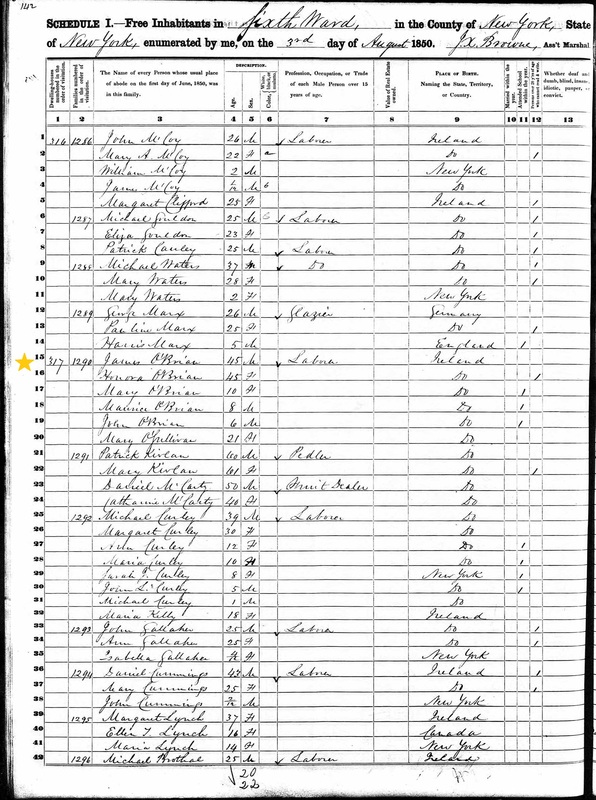 142
SCHEDULE I.—Free Inhabitants in Sixth Ward, in the County of New York, State
of New York, enumerated by me, on the 3rd day of August 1850. J.X. Browne, Ass't Marshal
Dwelling-houses numbered in the order of visitation. Families numbered in the order of visitation. The Name of every Person whose usual place of abode on the first day of June, 1850, was in this family. DESCRIPTION. Age. Sex. Color, White, black, or mulatto. Profession, Occupation, or Trade of each Male Person over 15 years of age. Value of Real Estate owned. PLACE OF BIRTH. Naming the State, Territory, or Country. Married within the year. Attended School within the year. Whether deaf and dumb, blind, insane, idiotic, pauper, or convict.
1 2 3 4 5 6 7 8 9 10 11 12 13
1 316 1286 John McCoy 26 M Laborer Ireland
2 Mary A McCoy 22 F Do 1
3 William McCoy 2 M New York
4 James McCoy M Do
5 Margaret Clifford 25 F Ireland 1
6 1287 Michael Gouldon 25 M Laborer Do 1
7 Eliza Gouldon 23 F Do 1
8 Patrick Curley 25 M Labor Do 1
9 1288 Michael Waters 37 M Do Do 1
10 Mary Waters 28 F Do 1
11 Mary Waters 2 F New York
12 1289 George Marx 26 M Glazier Germany
13 Pauline Marx 25 F Do 1
14 Harris Marx 5 M England 1
15 317 1290 James O'Brian 45 M Labor Ireland
16 Honora O'Brian 45 F Do 1
17 Mary O'Brian 10 F Do 1
18 Maurice O'Brian 8 M Do 1
19 John O'Brian 6 M Do 1
20 Mary O'Sullivan 21 F Do
21 1291 Patrick Kivlan 60 M Pedler Do
22 Mary Kivlan 61 F Do 1
23 Daniel McCarty 50 M Fruit Dealer Do
24 Catharine McCarty 40 F Do
25 1292 Michael Curley 39 M Laborer Do
26 Margaret Curley 30 F Do
27 Ann Curley 12 F Do 1
28 Maria Curley 10 F Do 1
29 Sarah F. Curley 8 F New York 1
30 John L. Curley 5 M Do 1
31 Michael Curley 1 M Do
32 Maria Kelly 18 F Ireland
33 1293 John Gallaher 25 M Laborer Do 1
34 Ann Gallaher 25 F Do 1
35 Isabella Gallaher F New York
36 1294 Daniel Cummings 43 M Labor Ireland 1
37 Mary Cummings 25 F Do 1
38 John Cummings M New York
39 1295 Margaret Lynch 37 F Ireland
40 Ellen T Lynch 16 F Canada
41 Maria Lynch 14 F New York
42 1296 Michael Brothal 25 M Laborer Ireland
20
22